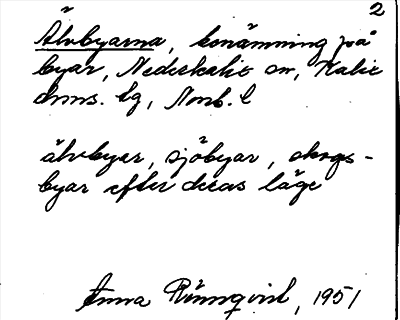 2
Älvbyarna, benämning på
byar, Nederkalix sn, Kalix
dmns. tg, Norrb. l
älvbyar, sjöbyar, skogs-
byar efter deras läge
Anna Rönnqvist, 1951